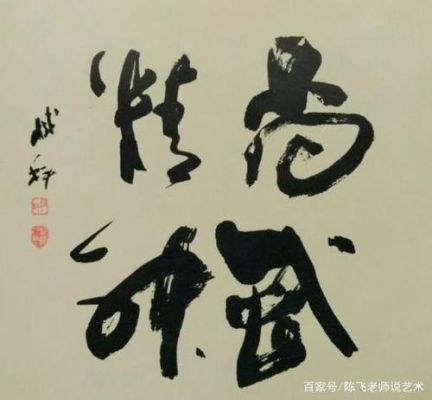 尚武
精神
百家号/陈飞老师说艺术